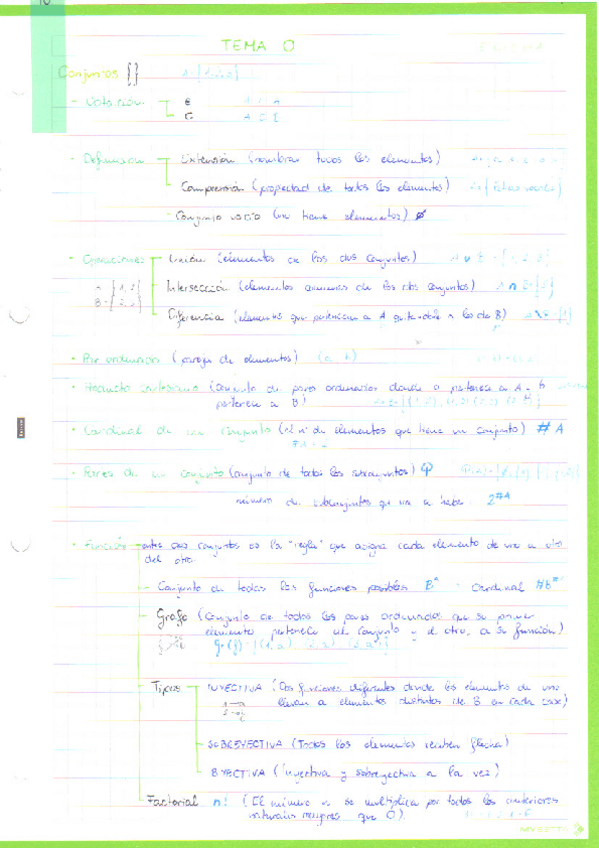 TEMA 0
Conjuntos {}
- Notación ∈ 1 ∈ A
⊂ A ⊂ I
- Definición Extensión (nombrar todos los elementos)
Comprensión (propiedad de todos los elementos)
Conjunto vacío (no tiene elementos) ∅
- Operaciones Unión (elementos de los dos conjuntos) A ∪ B = {1, 2, 3}
A = {1, 2} Intersección (elementos comunes de los dos conjuntos) A ∩ B = {2}
B = {2, 3}
Diferencia (elementos que pertenecen a A quitándole a los de B) A \ B = {1}
- Par ordenado (pareja de elementos) (a, b)
- Producto cartesiano (conjunto de pares ordenados donde a pertenece a A, b
pertenece a B)
- Cardinal de un conjunto (el nº de elementos que tiene un conjunto) # A
- Partes de un conjunto (conjunto de todos los subconjuntos) P
número de subconjuntos que va a haber 2#A
- Función entre dos conjuntos es la "regla" que asigna cada elemento de uno a otro
del otro.
- Conjunto de todas las funciones posibles Bᴬ - Cardinal
Grafo (Conjunto de todos los pares ordenados que su primer
elemento pertenece al conjunto y el otro, a su función)
Tipos INYECTIVA (Dos funciones diferentes donde los elementos de uno
llevan a elementos distintos de B en cada caso)
SOBREYECTIVA (Todos los elementos reciben flecha)
BIYECTIVA (inyectiva y sobreyectiva a la vez)
Factorial n! (El número n se multiplica por todos los anteriores
naturales mayores que 0)